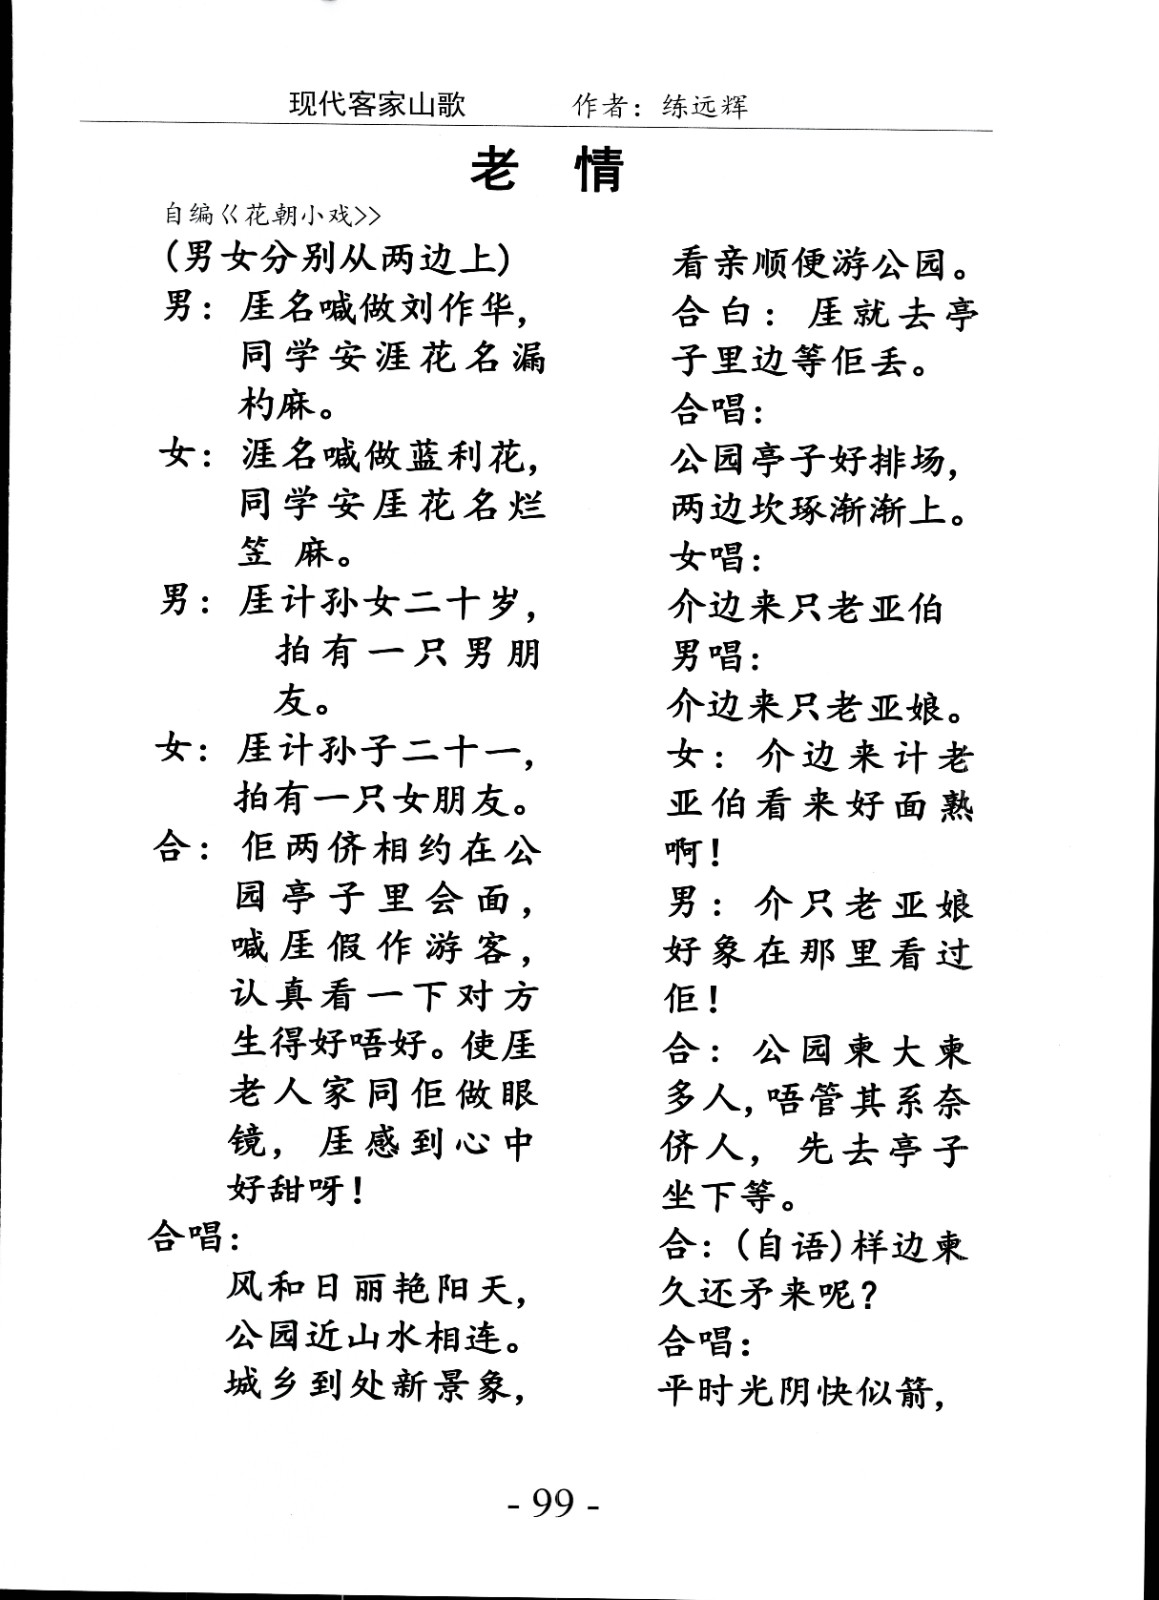 现代客家山歌 作者：练远辉
老 情
自编巜花朝小戏>>
(男女分别从两边上)
男：厓名喊做刘作华，
同学安涯花名漏
杓麻。
女：涯名喊做蓝利花，
同学安厓花名烂
笠 麻。
男：厓计孙女二十岁，
拍有一只男朋
友。
女：厓计孙子二十一，
拍有一只女朋友。
合：佢两侪相约在公
园亭子里会面，
喊厓假作游客，
认真看一下对方
生得好唔好。使厓
老人家同佢做眼
镜，厓感到心中
好甜呀！
合唱：
风和日丽艳阳天，
公园近山水相连。
城乡到处新景象，
看亲顺便游公园。
合白：厓就去亭
子里边等佢丢。
合唱：
公园亭子好排场，
两边坎琢渐渐上。
女唱：
介边来只老亚伯
男唱：
介边来只老亚娘。
女：介边来计老
亚伯看来好面熟
啊！
男：介只老亚娘
好象在那里看过
佢！
合：公园柬大柬
多人，唔管其系奈
侪人，先去亭子
坐下等。
合：(自语)样边柬
久还矛来呢？
合唱：
平时光阴快似箭，
- 99 -